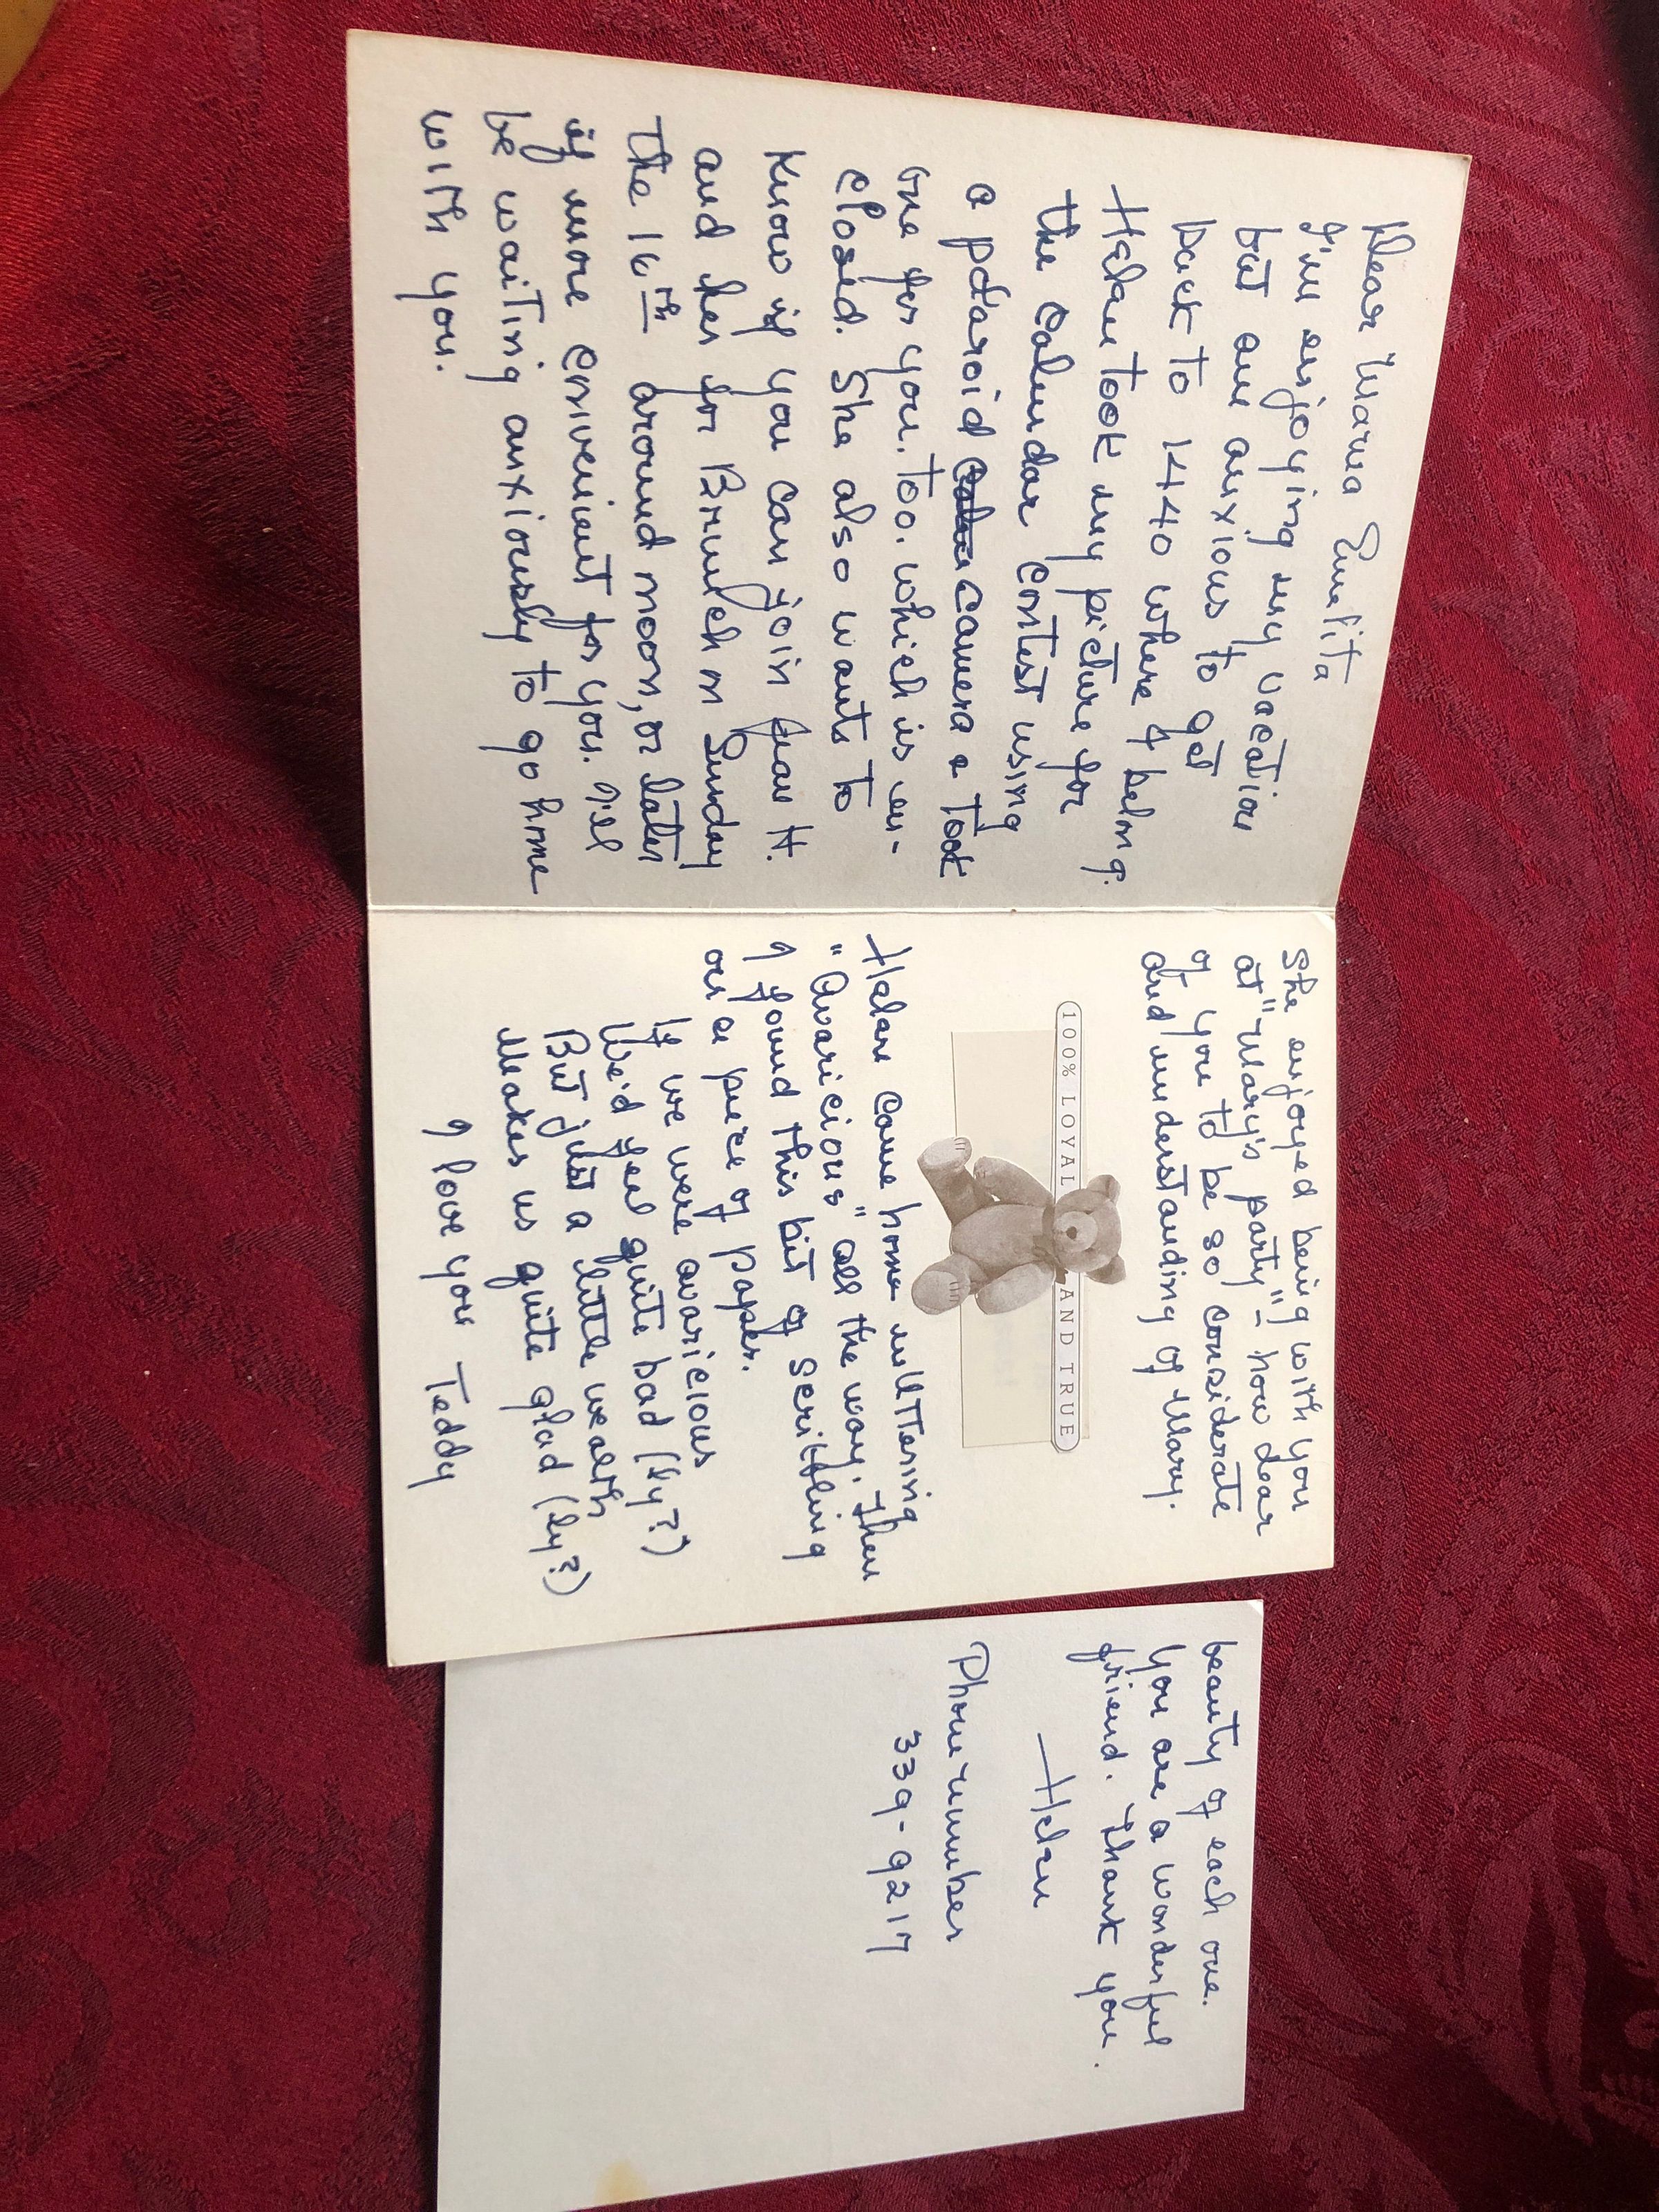 Dear Mama Emelita
I'm enjoying my vacation
but am anxious to get
back to 1440 where I belong.
Helen took my picture for
the Calendar Contest using
a polaroid camera & took
one for you, too. which is en-
closed. She also wants to
know if you can join Jean H.
and her for Brunch on Sunday
the 16th around noon, or later
if more convenient for you. I'll
be waiting anxiously to go home
with you.
She enjoyed being with you
at "Mary's party" – how dear
of you to be so considerate
and understanding of Mary.
100% LOYAL AND TRUE
Helen came home muttering
"Avaricious" all the way. Then
I found this bit of scribbling
on a piece of paper.
If we were avaricious
We'd feel quite bad (ly?)
But just a little wealth
Makes us quite glad (ly?)
I love you Teddy
beauty of each one.
You are a wonderful
friend. Thank you.
Helen
Phone number
339-9217